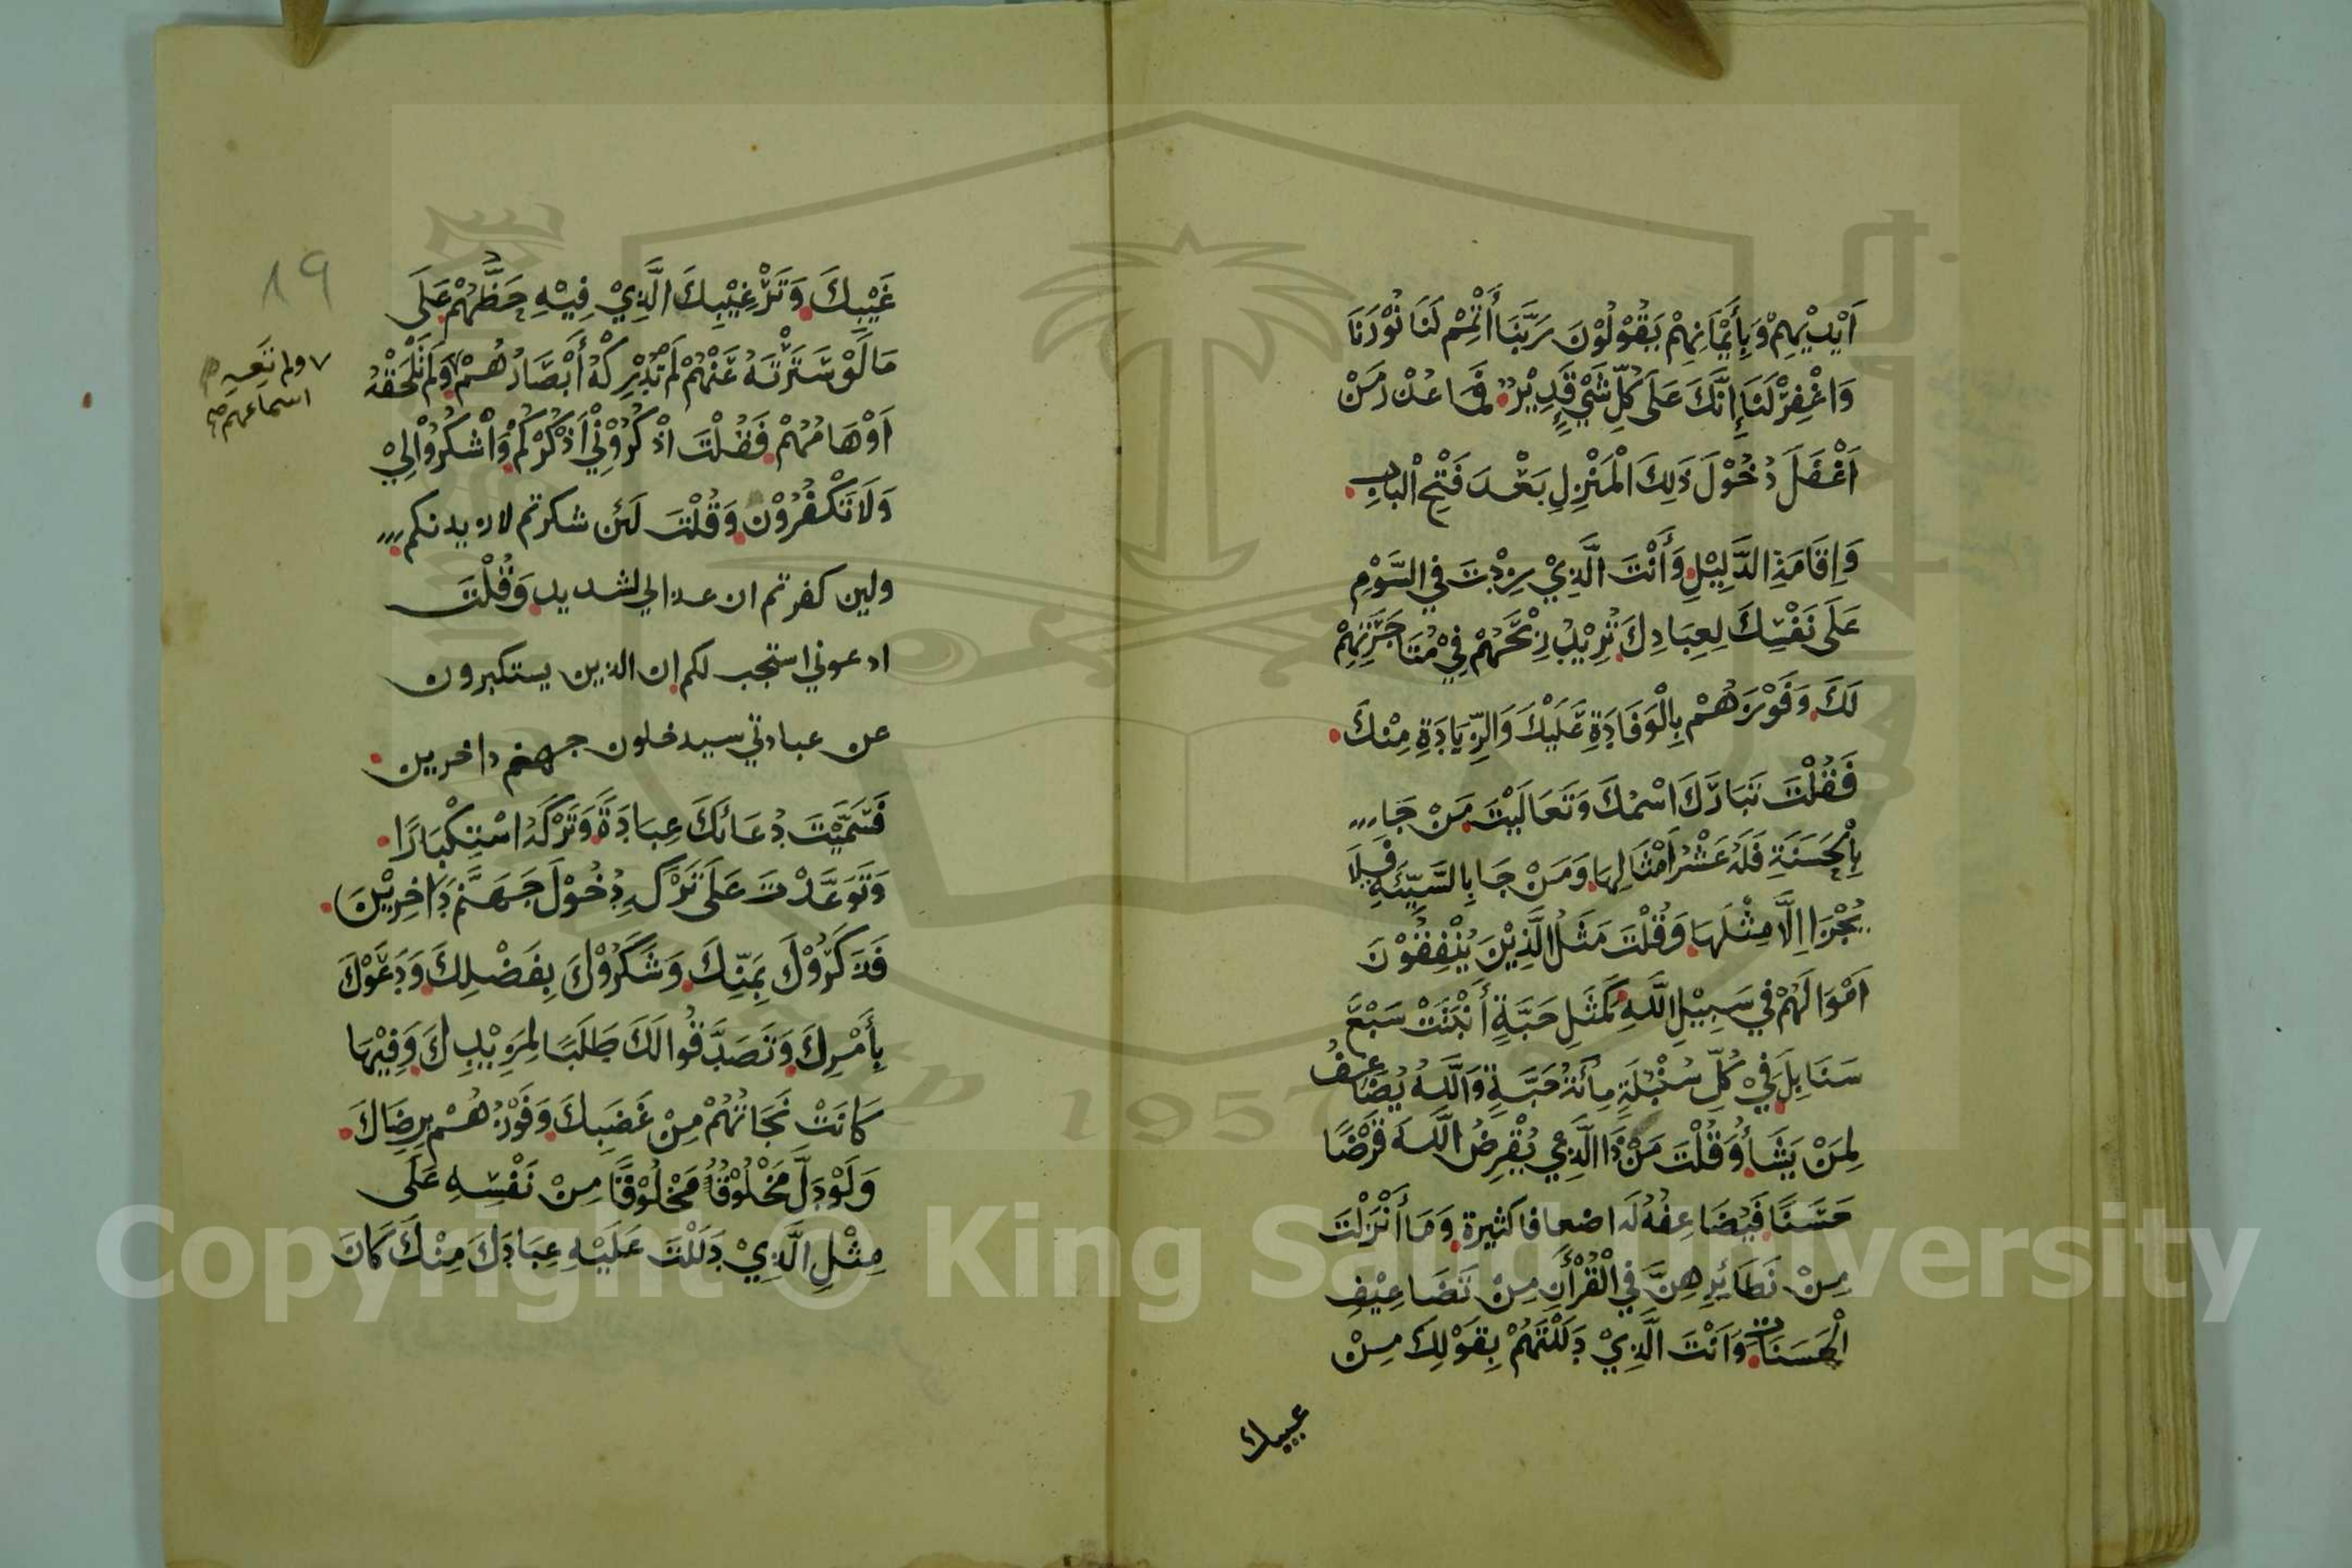 اَيْدِيْهِمْ وَبِأَيْمَانِهِمْ يَقُوْلُوْنَ رَبَّنَا أَتْمِمْ لَنَا نُوْرَنَا
وَاغْفِرْ لَنَا إِنَّكَ عَلَى كُلِّ شَيْءٍ قَدِيْرٌ فَمَا عُذْرُ مَنْ
اَغْفَلَ دُخُوْلَ ذَلِكَ الْمَنْزِلِ بَعْدَ فَتْحِ الْبَابِ
وَاِقَامَةِ الدَّلِيْلِ وَأَنْتَ الَّذِيْ زِدْتَ فِي السَّوْمِ
عَلَى نَفْسِكَ لِعِبَادِكَ تُرِيْدُ رِبْحَهُمْ فِيْ مُتَاجَرَتِهِمْ
لَكَ وَفَوْزَهُمْ بِالْوَفَادَةِ عَلَيْكَ وَالزِّيَادَةِ مِنْكَ
فَقُلْتَ تَبَارَكَ اسْمُكَ وَتَعَالَيْتَ مَنْ جَاء
بِالْحَسَنَةِ فَلَهُ عَشْرُ اَمْثَالِهَا وَمَنْ جَا بِالسَّيِّئَةِ فَلَا
يُجْزَا اِلَّا مِثْلَهَا وَقُلْتَ مَثَلُ الَّذِيْنَ يُنْفِقُوْنَ
اَمْوَالَهُمْ فِي سَبِيْلِ اللَّهِ كَمَثَلِ حَبَّةٍ أَنْبَتَتْ سَبْعَ
سَنَابِلَ فِيْ كُلِّ سُنْبُلَةٍ مِائَةُ حَبَّةٍ وَاللَّهُ يُضَاعِفُ
لِمَنْ يَشَأُ وَقُلْتَ مَنْ ذَا الَّذِي يُقْرِضُ اللَّهَ قَرْضًا
حَسَنًا فَيُضَاعِفُهُ لَهُ اضعافا كثيرة وَمَا أَنْزَلْتَ
مِنْ نَظَائِرِهِنَّ فِي الْقُرْأَنِ مِنْ تَضَاعِيْفِ
الْحَسَنَاتِ وَاَنْتَ الَّذِيْ دَلَلْتَهُمْ بِقَوْلِكَ مِنْ
غيبك
19
غَيْبِكَ وَتَرْغِيْبِكَ الَّذِيْ فِيْهِ حَظُّهُمْ عَلَى
مَا لَوْ سَتَرْتَهُ عَنْهُمْ لَمْ تُدْرِكْهُ أَبْصَارُهُمْ وَلَمْ تَلْحَقْهُ
ولم تَعِه
اسماعهم صح
اَوْهَامُهُمْ فَقُلْتَ اذْكُرُوْنِيْ اَذْكُرْكُمْ وَاشْكُرُوْا لِيْ
وَلَا تَكْفُرُوْنِ وَقُلْتَ لَئِن شكرتم لازيدنكم
ولين كفرتم ان عذابي لشديد وَقُلْتَ
ادعوني استجب لكم ان الذين يستكبرون
عن عبادتي سيدخلون جهنم داخرين
فَسَمَّيْتَ دُعَائَكَ عِبَادَةً وَتَرْكَهُ اسْتِكْبَارًا
وَتَوَعَّدْتَ عَلَى تَرْكِهِ دُخُوْلَ جَهَنَّمَ دَاخِرِيْنَ
فَذَكَرُوْكَ بِمَنِّكَ وَشَكَرُوْكَ بِفَضْلِكَ وَدَعَوْكَ
بِأَمْرِكَ وَتَصَدَّقُوا لَكَ طَلَبًا لِمَزِيْدِكَ وَفِيْهَا
كَانَتْ نَجَاتُهُمْ مِنْ غَضَبِكَ وَفَوْزُهُمْ بِرِضَاكَ
وَلَوْ دَلَّ مَخْلُوْقٌ مَخْلُوْقًا مِنْ نَفْسِهِ عَلَى
مِثْلِ الَّذِيْ دَلَلْتَ عَلَيْهِ عِبَادَكَ مِنْكَ كَانَ
1957
Copyright © King Saud University